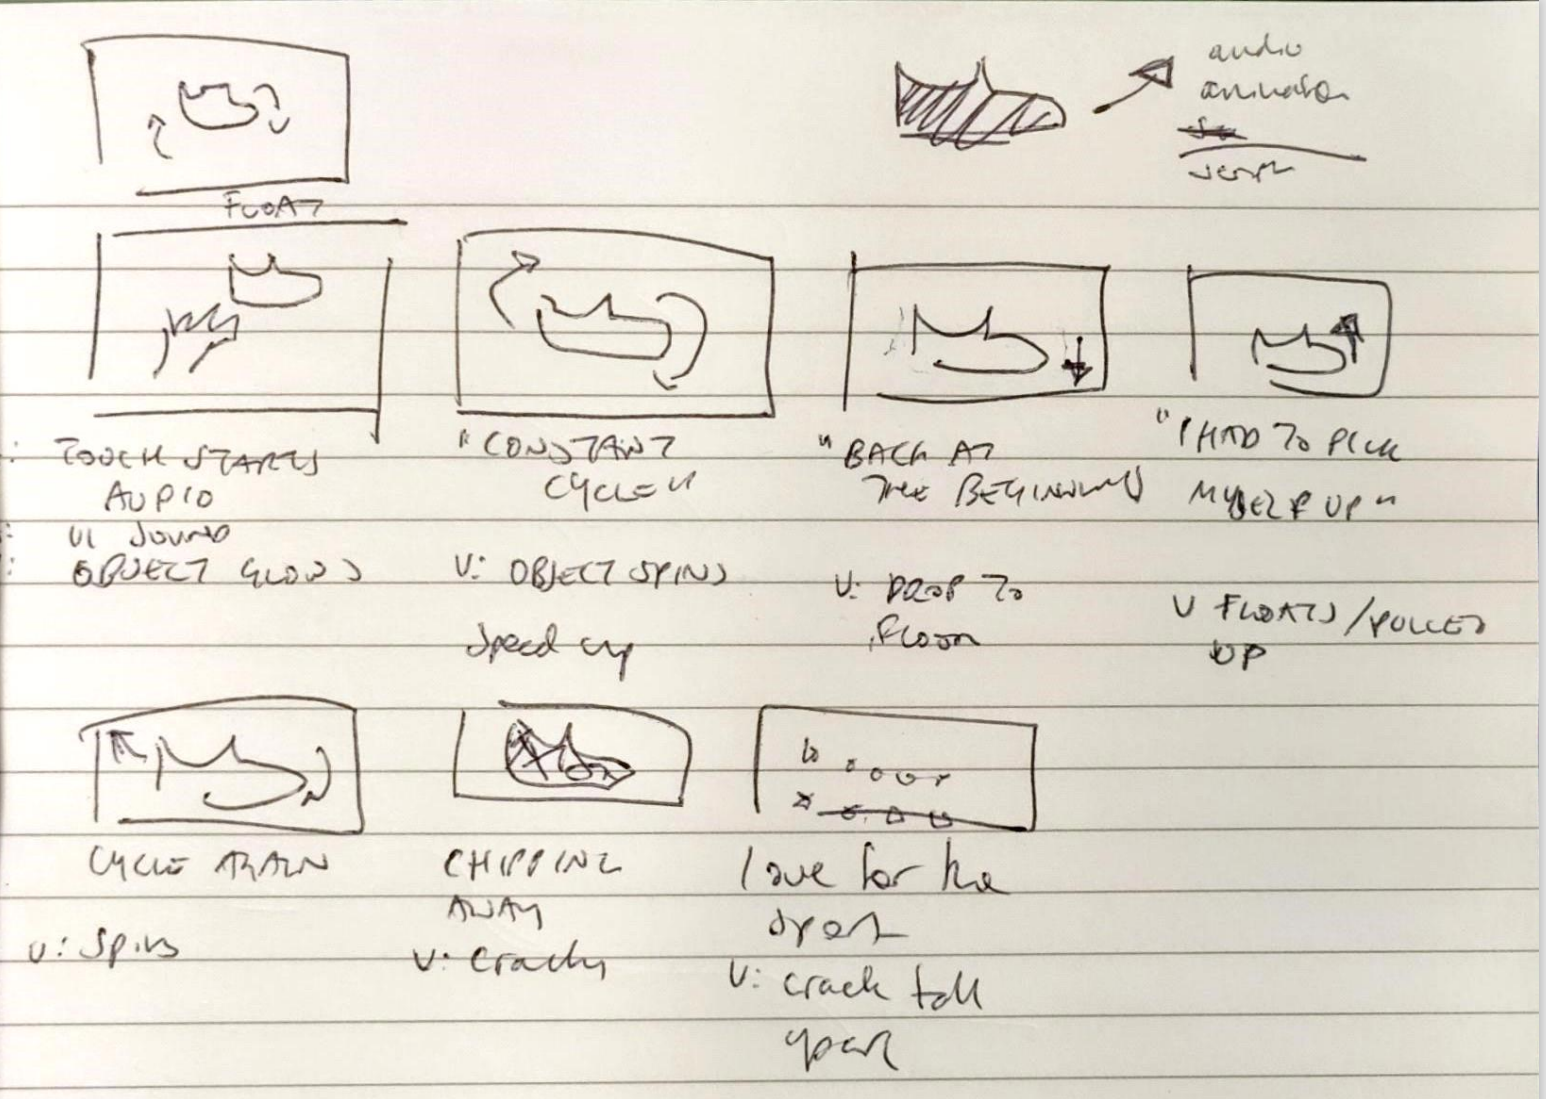 audio
animation
script
FLOAT
: TOUCH STARTS
AUDIO
: UI SOUND
: OBJECT GLOWS
"CONSTANT
CYCLE"
V: OBJECT SPINS
Speed up
"BACK AT
THE BEGINNING
V: DROP TO
FLOOR
"I HAD TO PICK
MYSELF UP"
V FLOATS/PULLED
UP
CYCLE AGAIN
V: SPINS
CHIPPING
AWAY
V: Cracks
love for the
sport
V: crack fall
apart